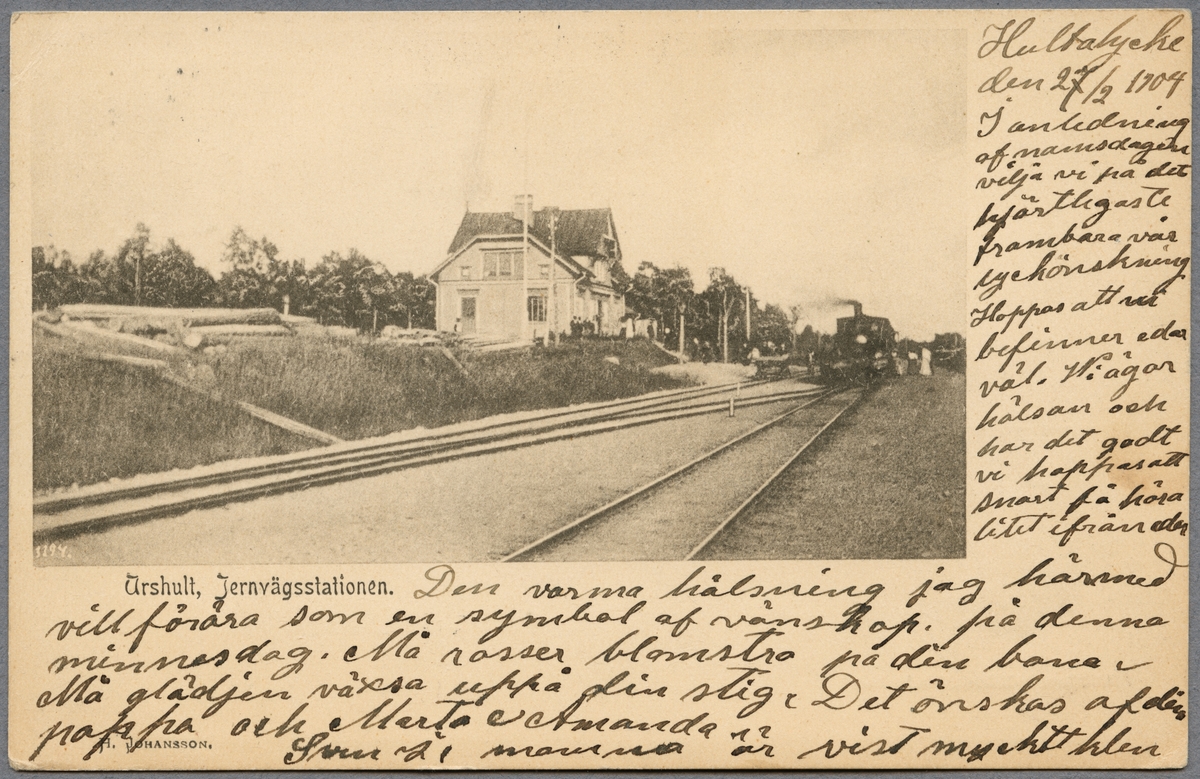 Hultalycke
den 27/2 1904
I anledning
af namsdagen
vilja vi på det
hjärtligaste
frambära vår
lyckönskning
Hoppas att vi
befinner eder
väl. Wi ägar
hälsan och
har det godt
vi hoppas att
snart få höra
litet ifrån eder
1194.
Urshult, Jernvägsstationen.
Den varma hälsning jag härmed
vill förära som en symbol af vänskap. på denna
minnesdag. Må rosser blomstra på din bana
Må glädjen växsa uppå din stig. Det önskas af din
pappa och Marta & Amanda
H. JOHANSSON.
mamma är vist mycktt klen